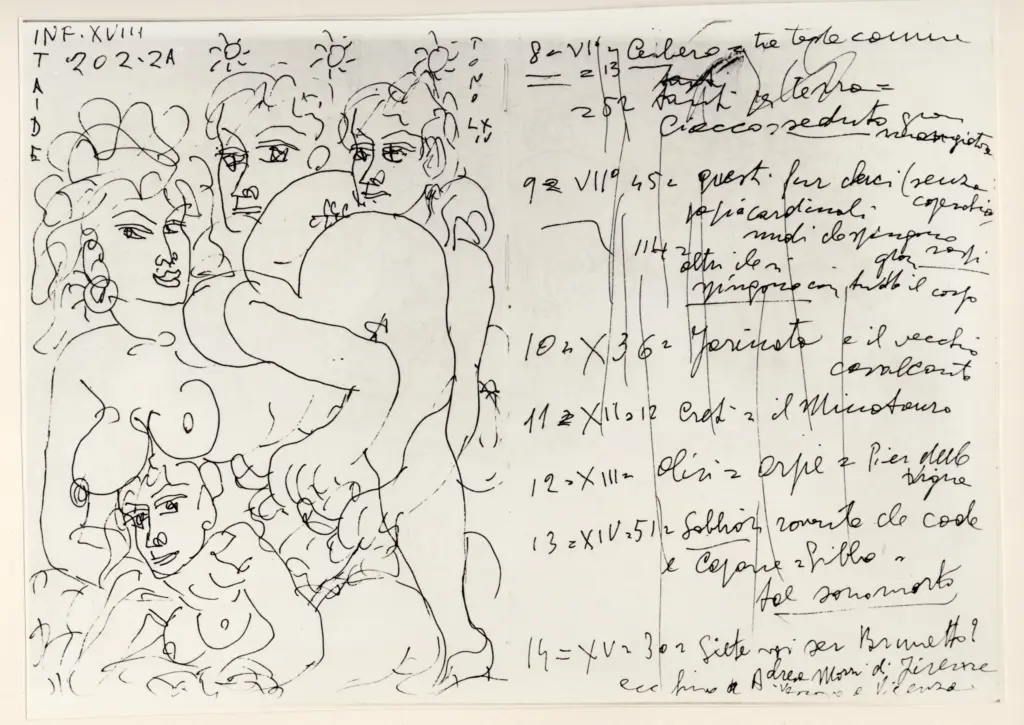 INF. XVIII
202-2A
TAIDE
TONOLXXIV
8= VI° Cerbero = tre teste comune
= 13
= 52 tanti per terra =
Ciacco seduto gran
mangiatore
9= VII° 45= questi fur cherci (senza
papi e cardinali coperchio
nudi che spingono
114 = gran sassi
altri che si
spingono con tutto il corpo
10= X 36= Farinata e il vecchio
cavalcante
11= XII=12 Creti = il Minotauro
12= XIII= Olivi = Arpie = Pier delle
Vigne
13=XIV=51= Sabbion rovente che cade
e Capaneo =
tal sono morto
14=XV=30= Siete voi ser Brunetto?
ecc fino a Andrea Mozzi di Firenze
e Vicenza